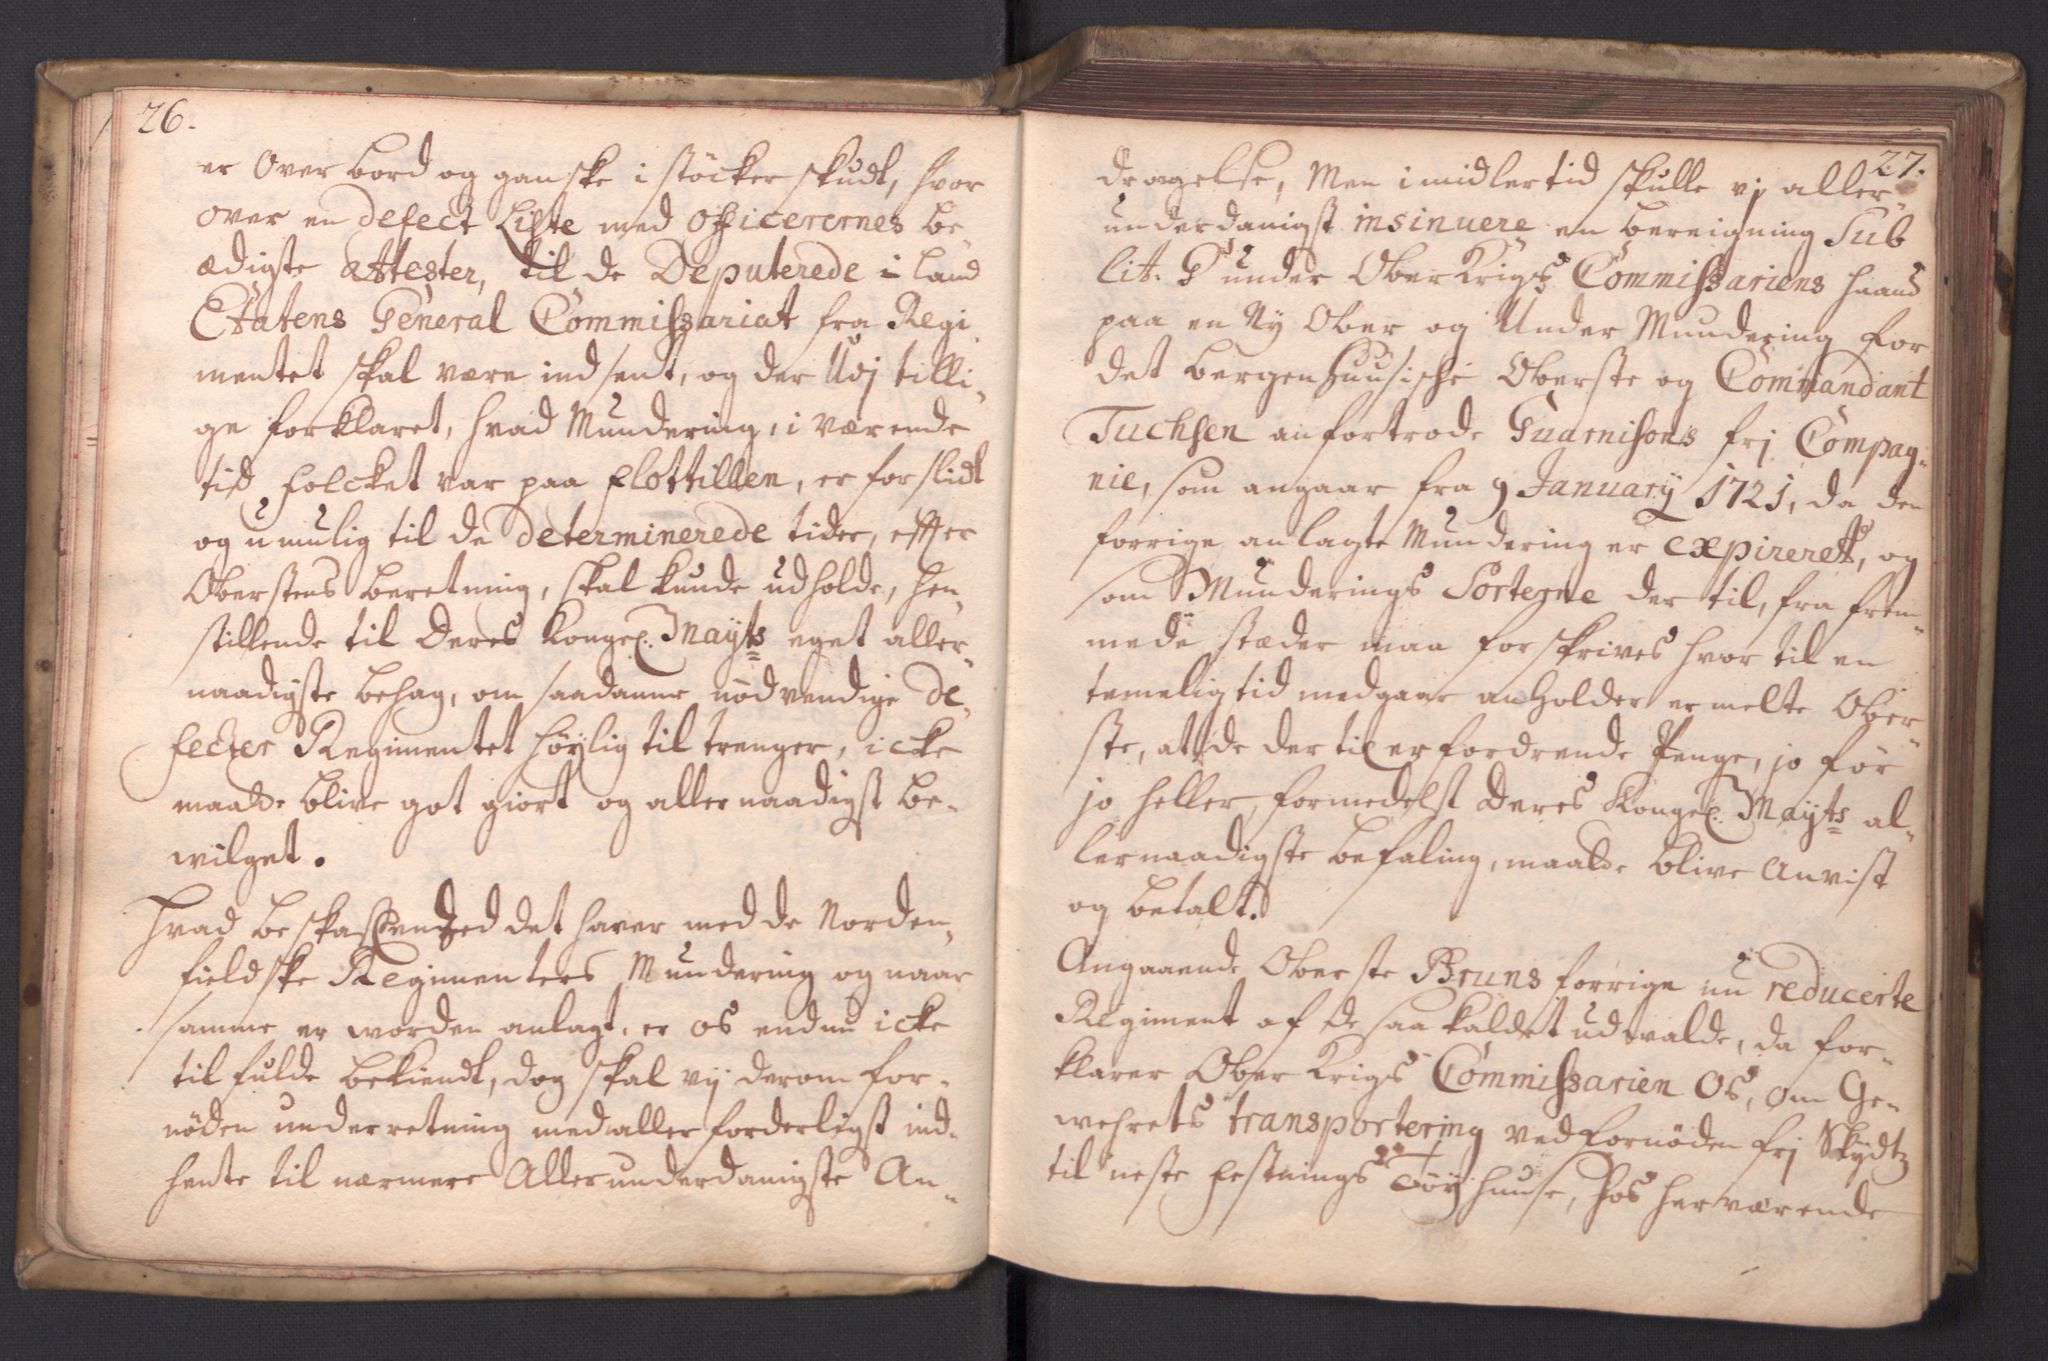 26.
er over bord og ganske i stöcker skudt, hvor
over en defect Liste med officerernes be-
ædigste Attester, til de Deputerede i Land
Etatens General Commissariat fra Regi
mentet skal være indsent, og der udj tilli-
ge forklaret, hvad Mundering, i værende
tid folcket var paa flottillen, er forslidt
og umulig til de determinerede tider, efter
Oberstens beretning, skal kunde udholde, hen-
stillende til Deres Kongel. Mayts eget aller-
naadigste behag, om saadanne nödvendige de-
fecter Regimentet höylig til trenger, icke
maatte blive got giort og allernaadigst be-
wilget.
Hvad beskaffenhed det haver med de Norden-
fieldske Regimenters Mundering og naar
samme er worden anlagt, er os endnu icke
til fulde bekiendt, dog skal vij derom for-
nöden underretning med allerforderligst ind-
hente til nærmere Allerunderdanigste An-
27.
dragelse, Men imidlertid skulle vj aller-
underdanigst insinuere en bereigning Sub
lit. G under Ober Krigs Commissariens haand
paa en Ny Ober og Under Mundering for
det bergenhuusische Oberste og Commandant
Tuchsen anfortrode Guarnisons frj Compag-
nie, som angaar fra 9 January 1721, da den
forrige anlagte Mundering er expireret, og
som Munderings Sorterne der til, fra frem-
mede stæder maa forskrives hvor til en
temelig tid medgaar anholder ermelte Ober-
ste, at de der til erfordrende Penge, jo för
jo heller, formedelst Deres Kongel. Mayts al-
lernaadigste befaling, maatte blive Anvist
og betalt.
Angaaende Oberste Bruns forrige nu reducerte
Regiment af de saa kaldet udvalde, da for-
klarer Ober Krigs Commissarien Os, om Ge-
wehrets transportering ved fornöden frj Skydtz
til neste festnings Töyhuuse, hos herværende